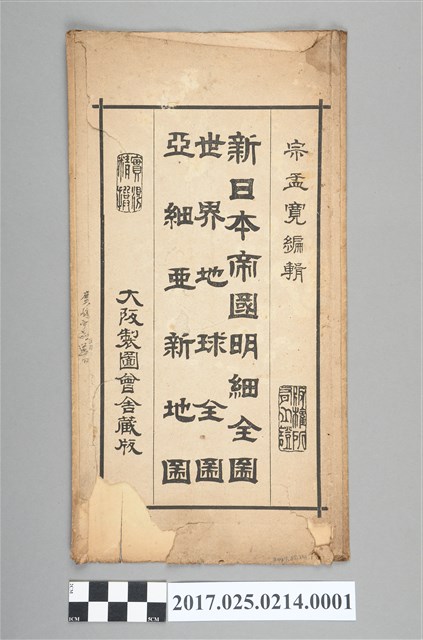 宗孟寬編輯
新日本帝國明細全圖
世界地球全圖
亞細亜新地圖
大阪製圖會舍藏版
2017.025.0214.0001